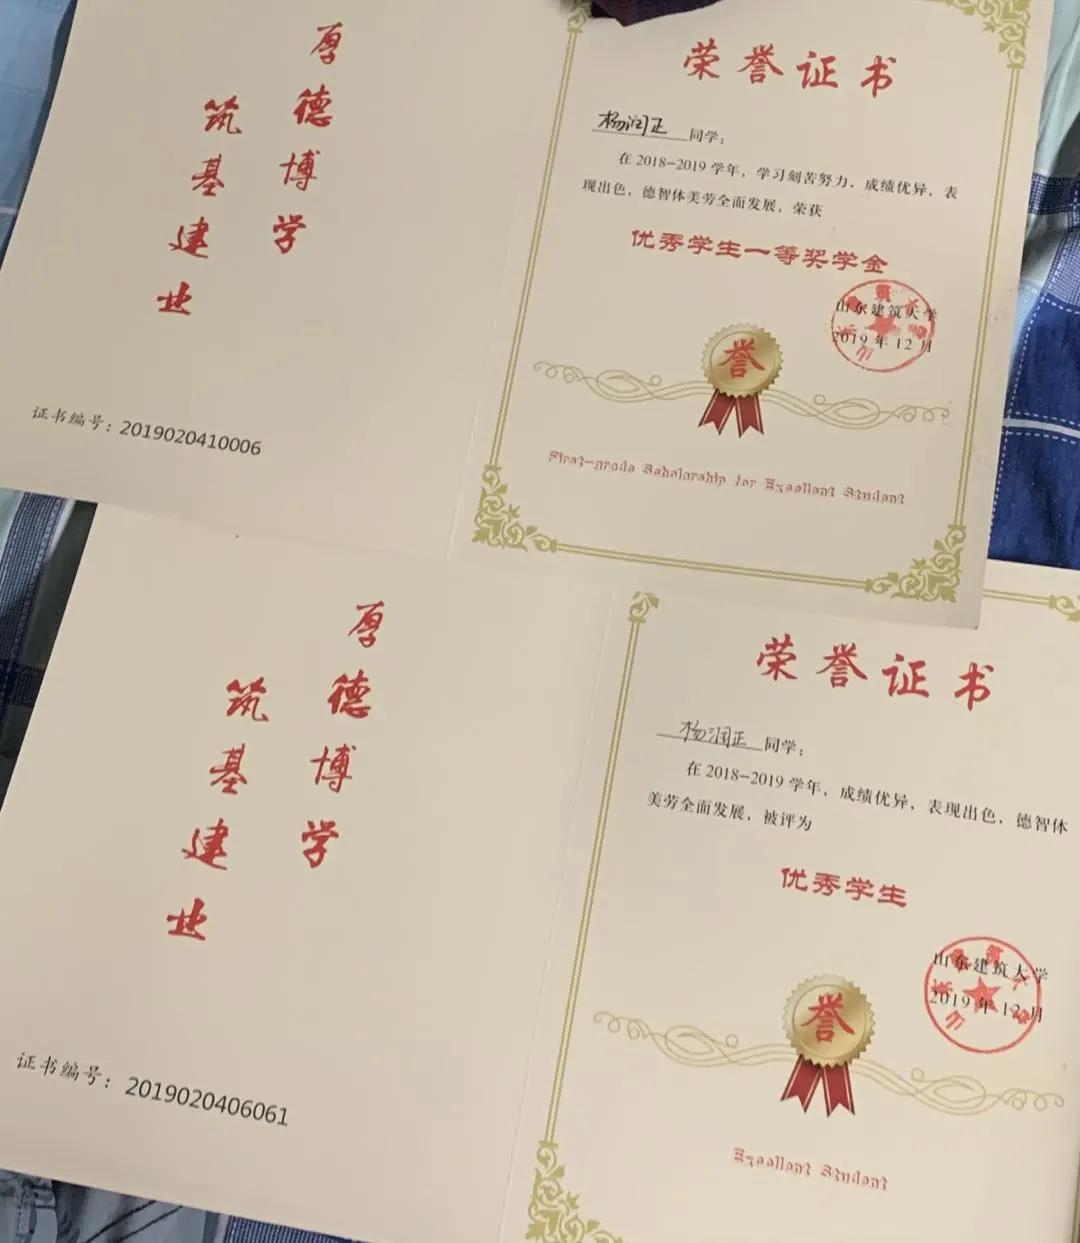 厚德博学
筑基建业
证书编号：2019020410006
荣誉证书
杨润正 同学：
在 2018-2019 学年，学习刻苦努力，成绩优异，表
现出色，德智体美劳全面发展，荣获
优秀学生一等奖学金
山东建筑大学
2019 年 12 月
誉
First-grade Scholarship for Excellent Student
厚德博学
筑基建业
证书编号：2019020406061
荣誉证书
杨润正 同学：
在 2018-2019 学年，成绩优异，表现出色，德智体
美劳全面发展，被评为
优秀学生
山东建筑大学
2019 年 12 月
誉
Excellent Student